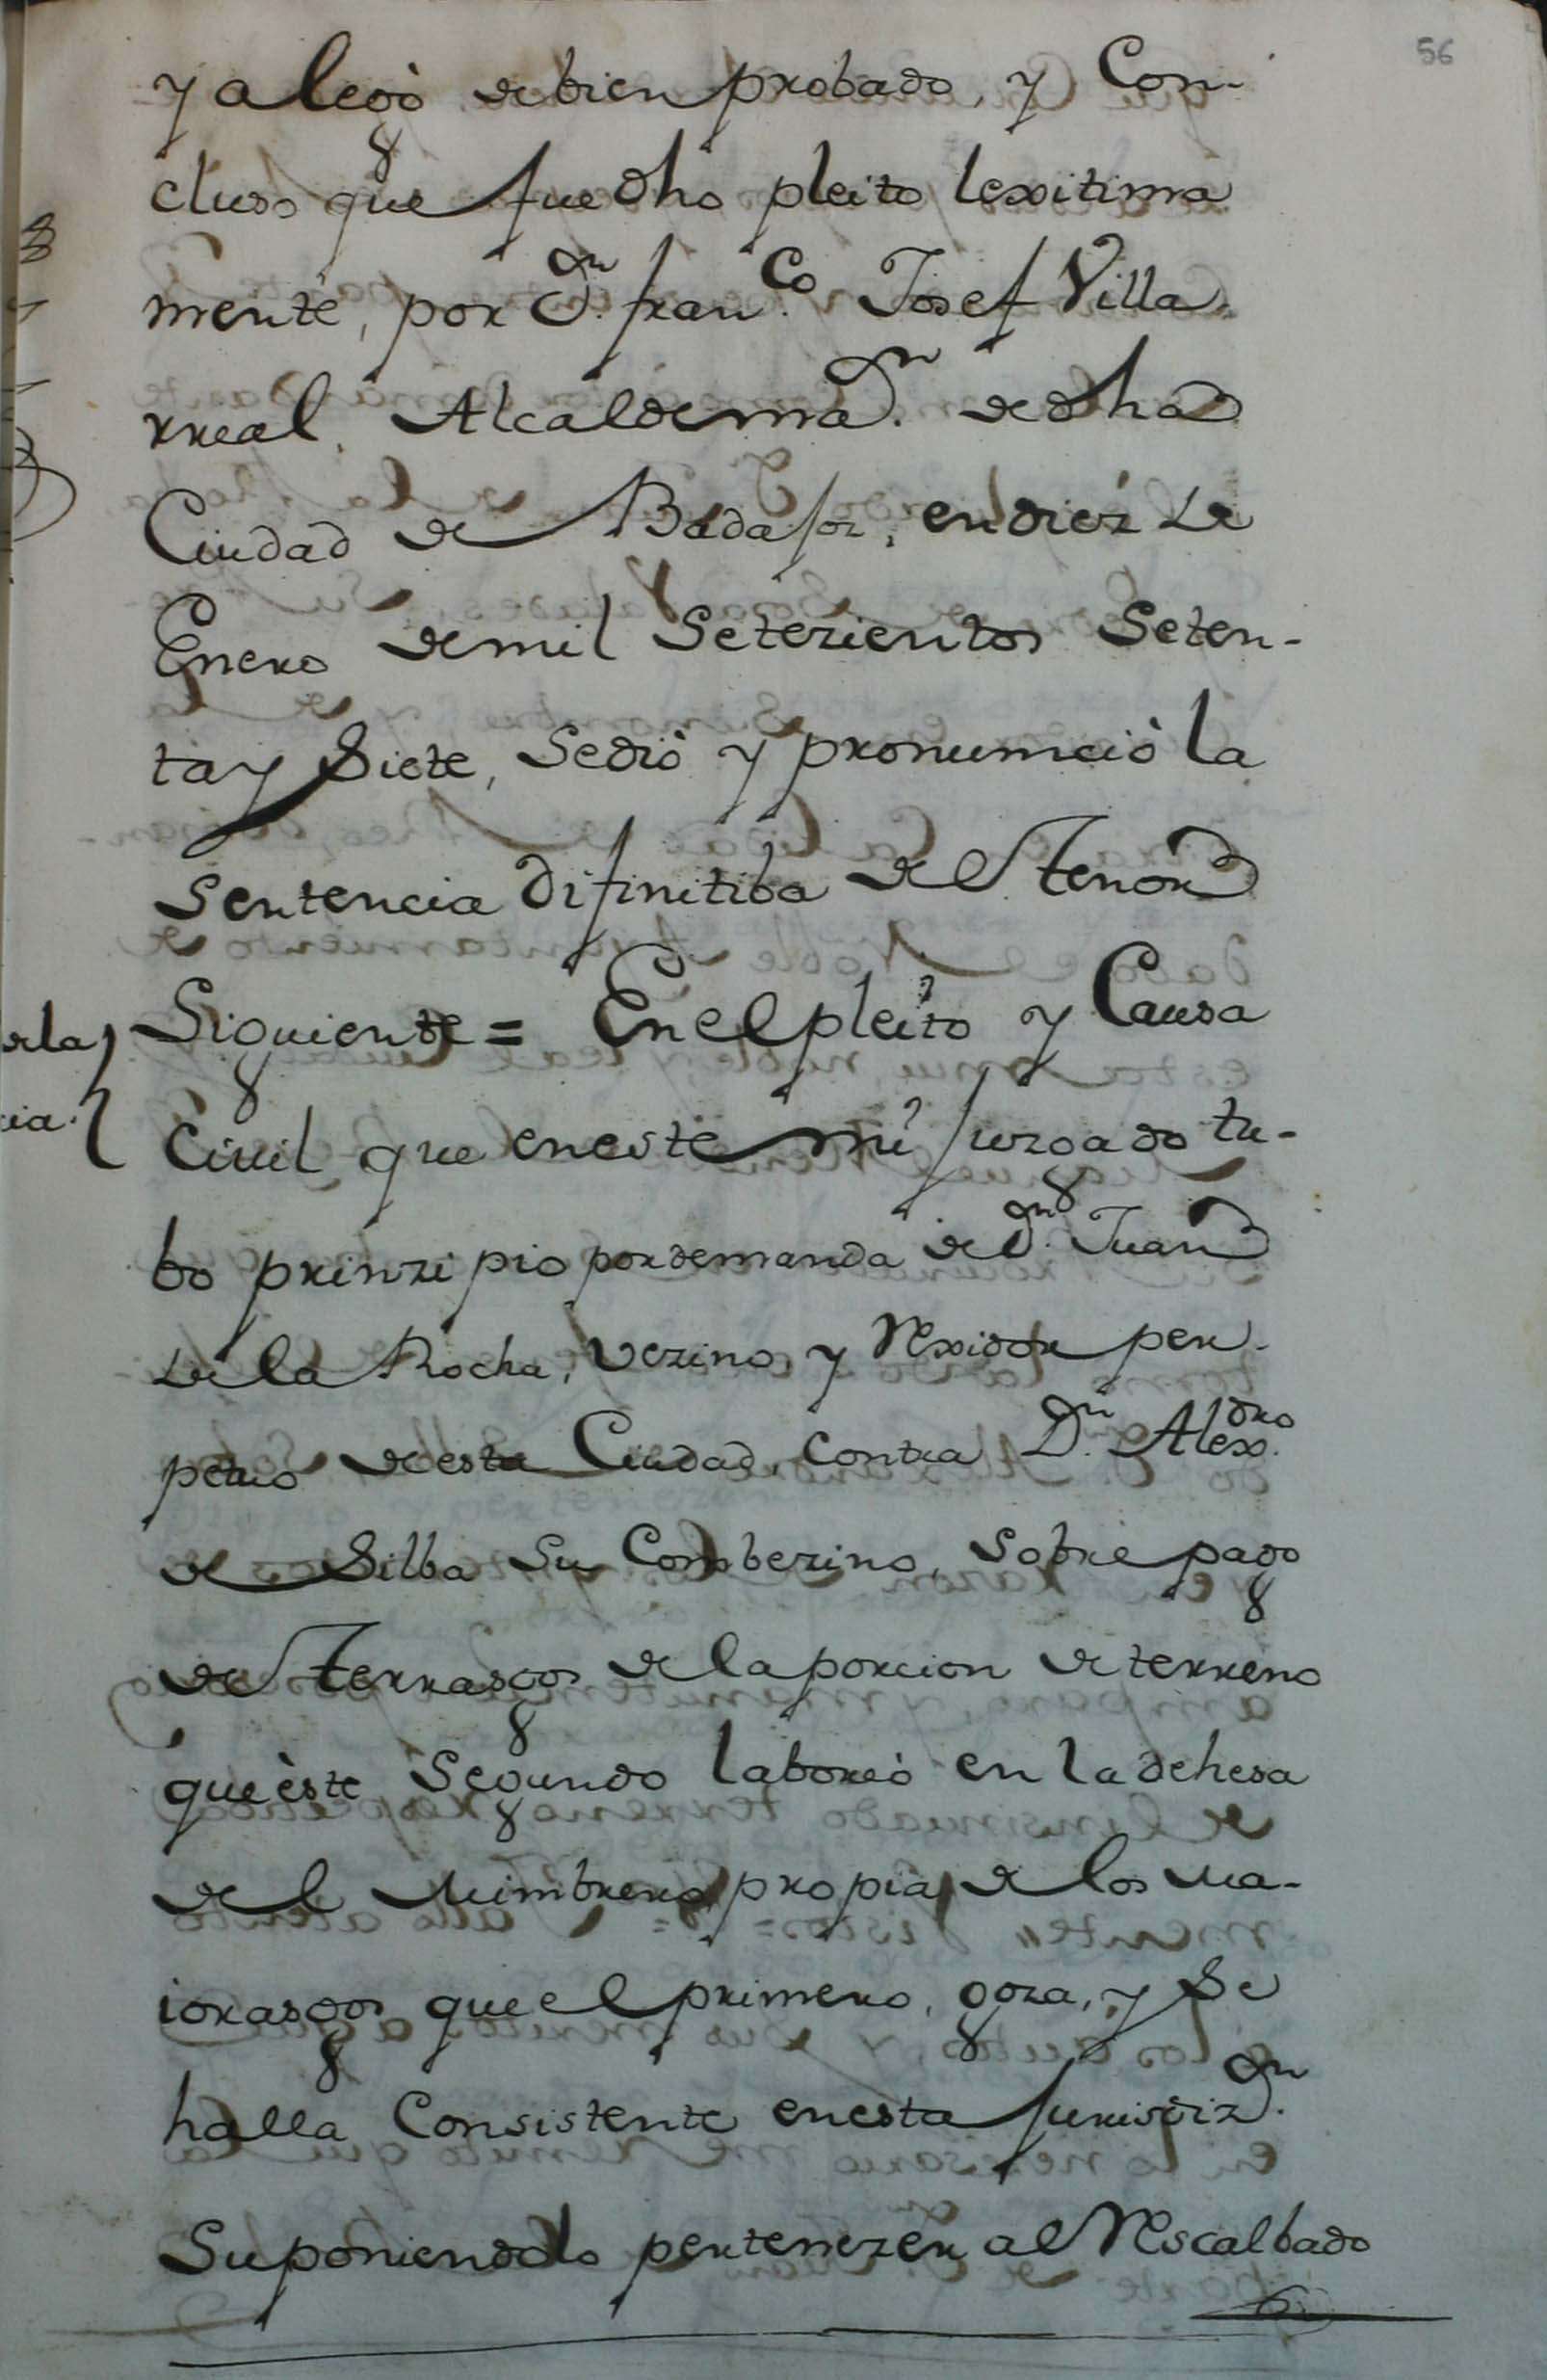 56
y alegò de bien probado, y Con-
cluso que fue dho pleito lexitima
mente, por Dn. franco. Josef Villa
rreal, Alcalde maor. de dha
Ciudad de Badajoz, en diez de
Enero de mil Setezientos Seten-
ta y Siete, Se diò y pronunciò la
Sentencia difinitiba del tenor
Siguiente = En el pleito y Causa
Civil que en este mi juzgado tu-
bo prinzipio por demanda de Dn. Juan
de la Rocha, vezino, y Rexidor per-
petuo de esta Ciudad, Contra Dn. Alexdro.
de Silba Su Combezino, Sobre pago
de terrasgos de la porcion de terreno
que èste Segundo laboreò en la dehesa
del Mimbrero, propia de los Ma-
iorasgos que el primero, goza, y Se
halla Consistente en esta jurisdizn.
Suponiendolo pertenezer al Rescalbado